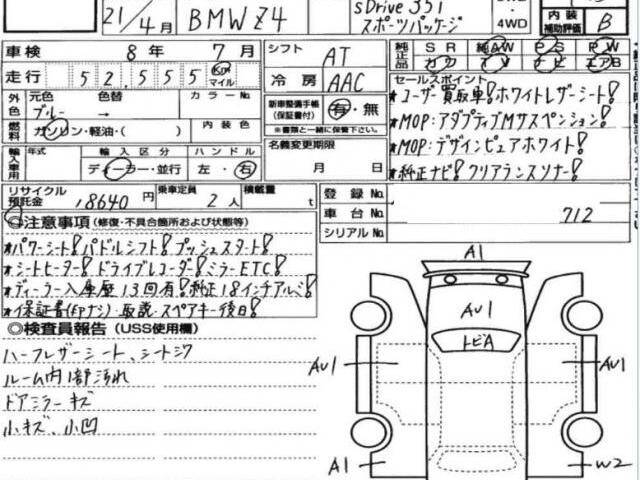 21/4月 BMW Z4 sDrive 35i スポーツパッケージ 4WD 内装 補助評価 B
車検 8年 7月 シフト AT 純正品 SR 純AW PS PW
走行 52,555 km マイル 冷房 AAC カワ TV ナビ エアB
外色 元色 色替 カラーNo.
ブルー →
新車整備手帳(保証書付) 有・無
※書類と一緒に保管下さい。
セールスポイント
★ユーザー買取車!ホワイトレザーシート!
★MOP:アダプティブMサスペンション!
★MOP:デザインピュアホワイト!
★純正ナビ!クリアランスソナー!
燃料 ガソリン・軽油・( ) 内装色
名義変更期限 月 日
輸入車用 年式 輸入区分 ハンドル
ディーラー・並行 左・右
リサイクル預託金 18640円 乗車定員 2人 積載量 t
登録No.
車台No. 712
シリアルNo.
◎注意事項(修復・不具合箇所および状態等)
★パワーシート!パドルシフト!プッシュスタート!
★シートヒーター!ドライブレコーダー!ミラーETC!
★ディーラー入庫歴13回有!純正18インチアルミ!
★保証書(印ナシ)・取説・スペアキー後日!
◎検査員報告(USS使用欄)
ハーフレザーシート、シートシワ
ルーム内1部汚れ
ドアミラーキズ
小キズ、小凹
A1
AU1
トビA
AU1 AU1
A1 W2